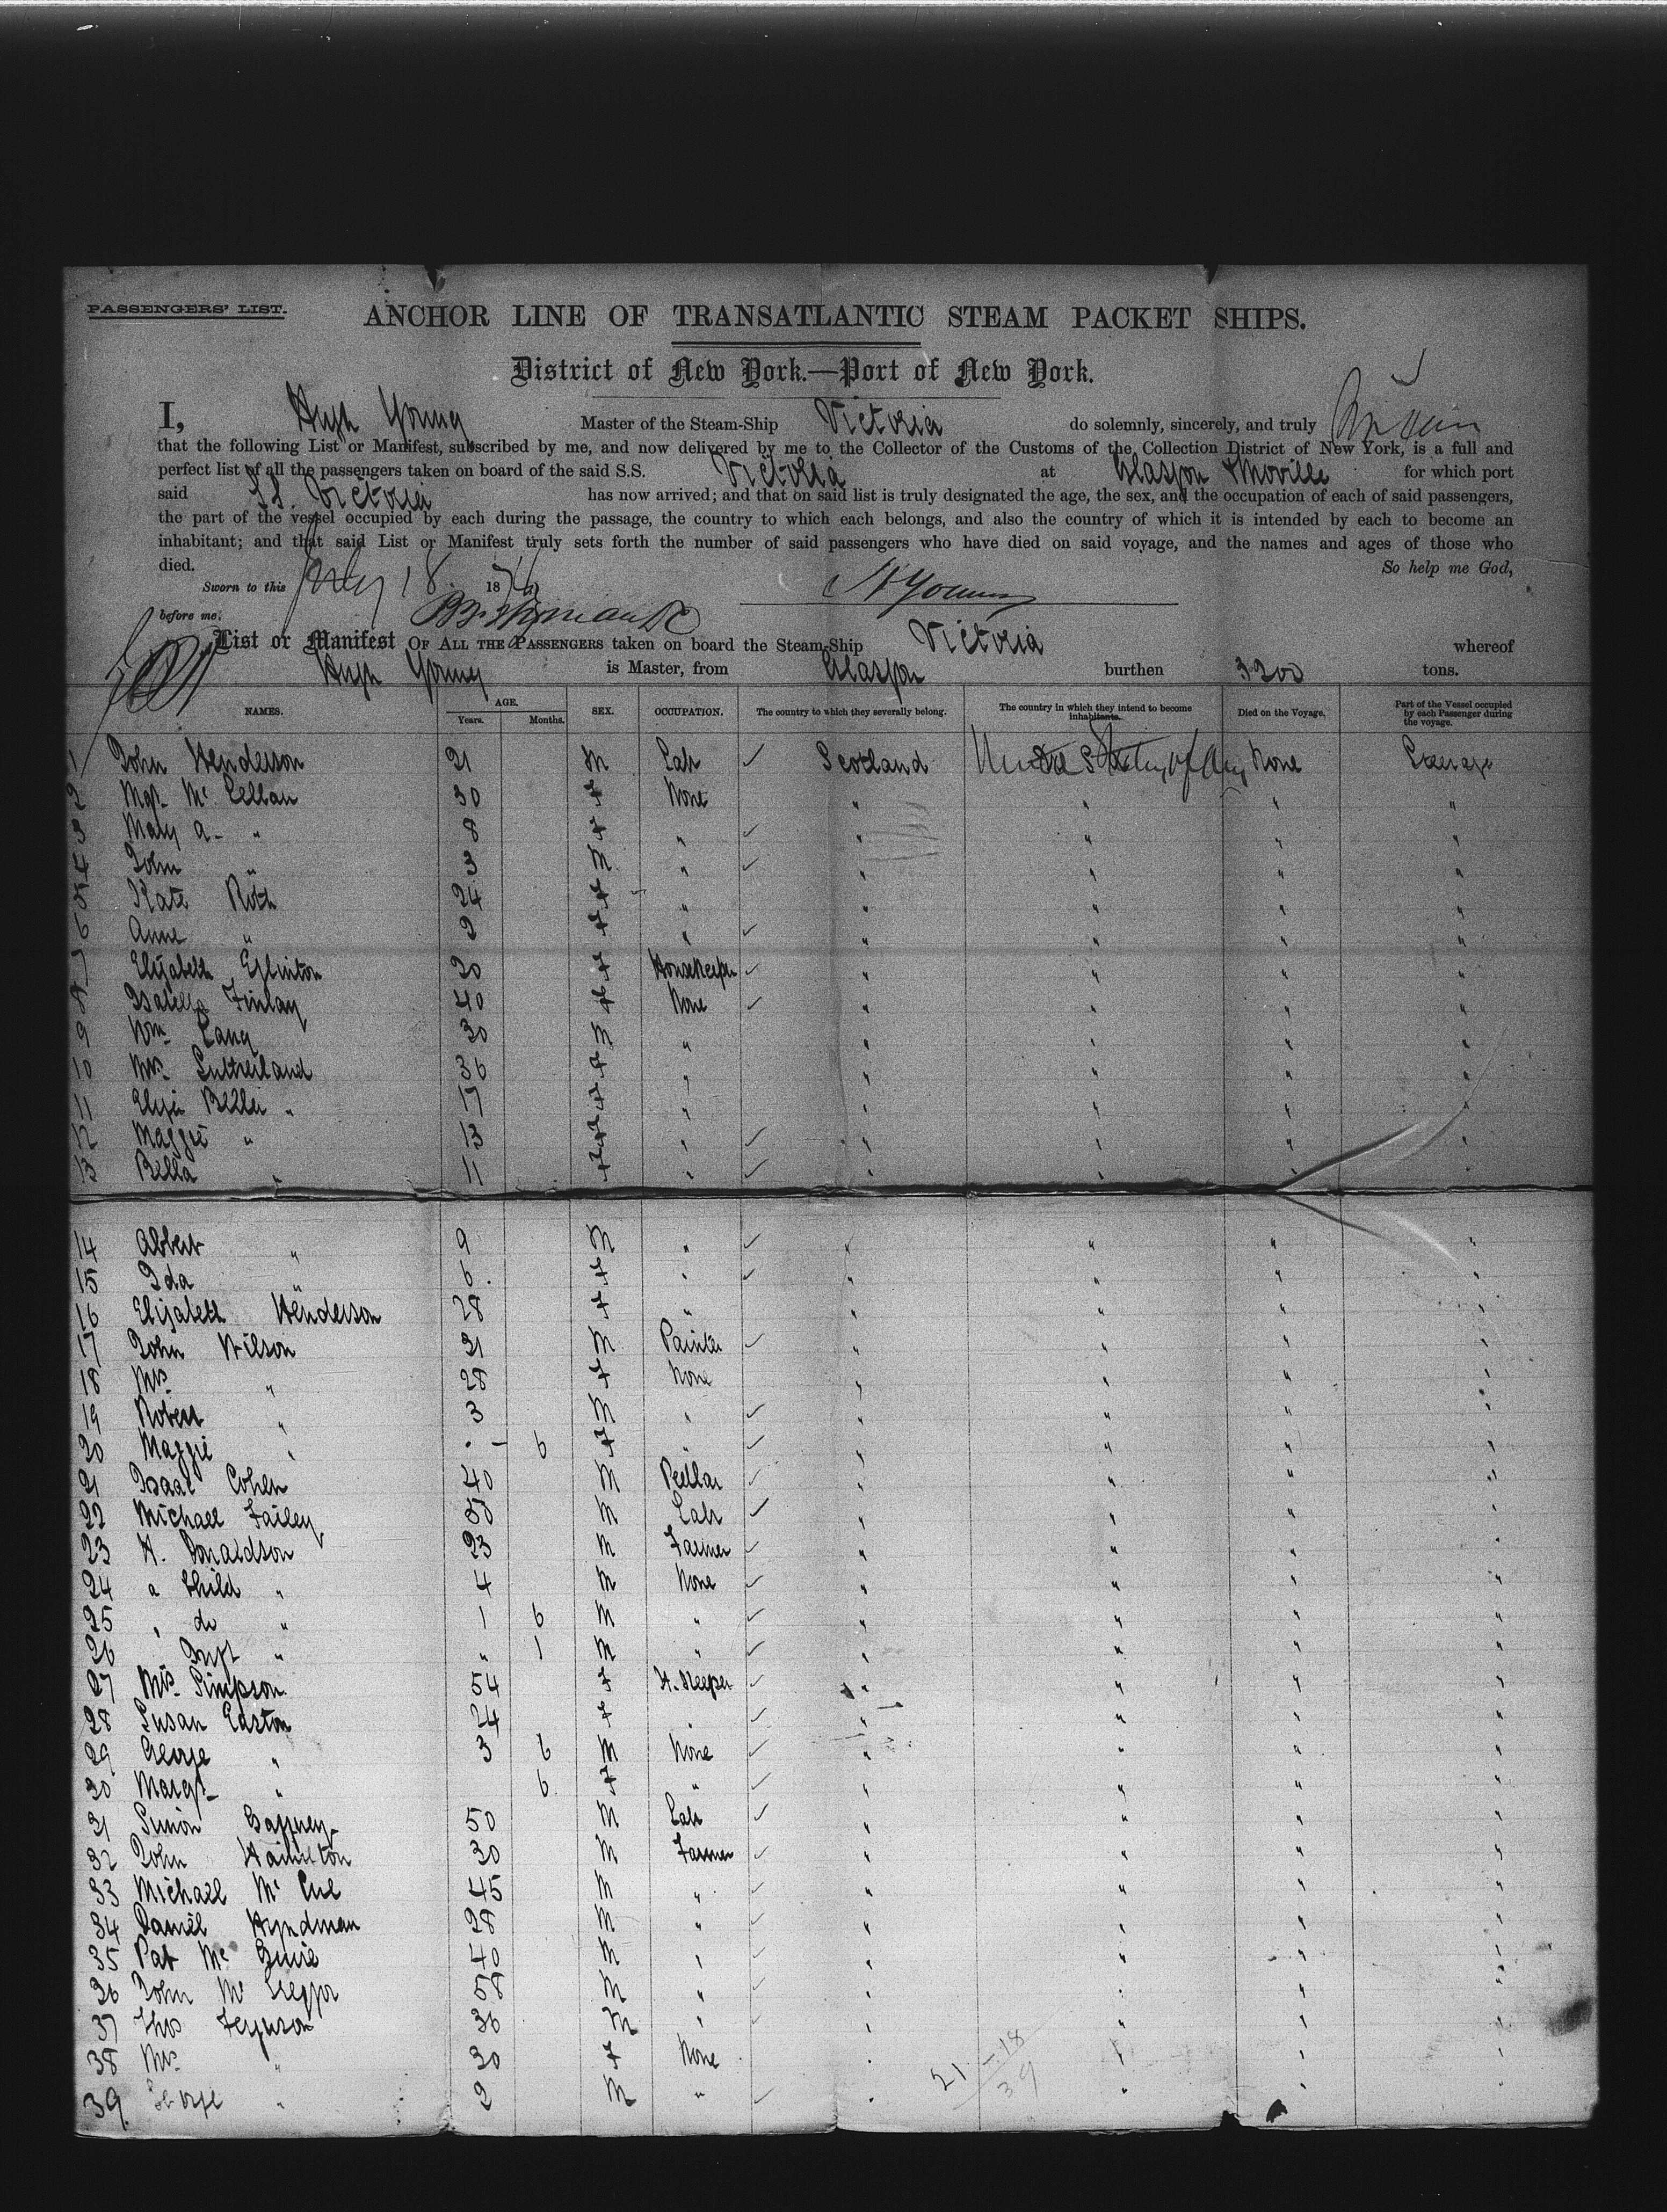 PASSENGERS' LIST.
ANCHOR LINE OF TRANSATLANTIC STEAM PACKET SHIPS.
District of New York.—Port of New York.
I, Hugh Young Master of the Steam-Ship Victoria do solemnly, sincerely, and truly
that the following List or Manifest, subscribed by me, and now delivered by me to the Collector of the Customs of the Collection District of New York, is a full and
perfect list of all the passengers taken on board of the said S.S. Victoria at Glasgow & Moville for which port
said S.S. Victoria has now arrived; and that on said list is truly designated the age, the sex, and the occupation of each of said passengers,
the part of the vessel occupied by each during the passage, the country to which each belongs, and also the country of which it is intended by each to become an
inhabitant; and that said List or Manifest truly sets forth the number of said passengers who have died on said voyage, and the names and ages of those who
died. So help me God,
Sworn to this 18 187 H Young
before me.
List or Manifest OF ALL THE PASSENGERS taken on board the Steam-Ship Victoria whereof
Hugh Young is Master, from Glasgow burthen 3200 tons.
NAMES. AGE. Years. Months. SEX. OCCUPATION. The country to which they severally belong. The country in which they intend to become inhabitants. Died on the Voyage. Part of the Vessel occupied by each Passenger during the voyage.
1 John Henderson 21 M Labr Scotland United States of Am None Steerage
2 Mgt Mc Lellan 30 F None " " " "
3 Mary A. " 8 F " " " " "
4 John " 3 M " " " " "
5 Kate 24 F " " " " "
6 Anne " 2 F " " " " "
7 Elizabeth Eglinton 20 F Housekeeper " " " "
8 Isabella Finlay 40 F None " " " "
9 Wm Lang 30 M " " " " "
10 Mrs Sutherland 36 F " " " " "
11 Eliza " 17 F " " " " "
12 Maggie " 13 F " " " " "
13 Bella " 11 F " " " " "
14 Albert " 9 M " " " " "
15 Ida " 6 F " " " " "
16 Elizabeth Henderson 28 F " " " " "
17 John Wilson 31 M Painter " " " "
18 Mrs " 28 F None " " " "
19 Robert " 3 M " " " " "
20 Maggie " - 6 F " " " " "
21 Isaac Cohen 40 M Pedlar " " " "
22 Michael Failey 50 M Labr " " " "
23 H. Donaldson 23 M Farmer " " " "
24 a Child " 4 M None " " " "
25 " do " 1 6 M " " " " "
26 " Inft " " 1 M " " " " "
27 Mrs Simpson 54 F H. Keeper " " " "
28 Susan Easton 24 F " " " " "
29 George " 3 6 M None " " " "
30 Margt " 6 F " " " " "
31 Simon Gaffney 50 M Labr " " " "
32 John Hamilton 30 M Farmer " " " "
33 Michael Mc Cue 45 M " " " " "
34 Daniel Hyndman 28 M " " " " "
35 Pat Mc Guire 40 M " " " " "
36 John Mc Gregor 58 M " " " " "
37 Thos Ferguson 36 M " " " " "
38 Mrs " 30 F None " " " "
39 George " 2 M " " " " "
21 - 18
39